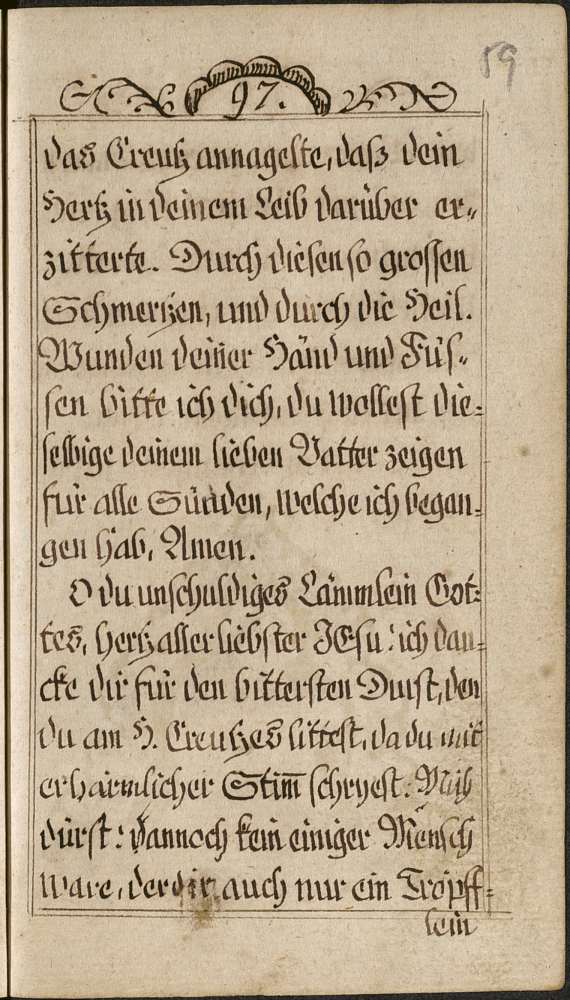 59
97.
das Creutz annagelte, daß dein
Hertz in deinem Leib darüber er„
zitterte. Durch diesen so grossen
Schmertzen, und durch die Heil.
Wunden deiner Händ und Füs„
sen bitte ich dich, du wollest die„
selbige deinem lieben Vatter zeigen
für alle Sünden, welche ich began„
gen hab, Amen.
O du unschuldiges Lämmlein Got„
tes, hertzallerliebster JEsu! ich dan„
cke dir für den bittersten Durst, den
du am H. Creutzes littest, da du mit
erbärmlicher Stim̄ schryest: Mich
dürst: dannoch kein einiger Mensch
ware, der dir auch nur ein Tröpff„
lein